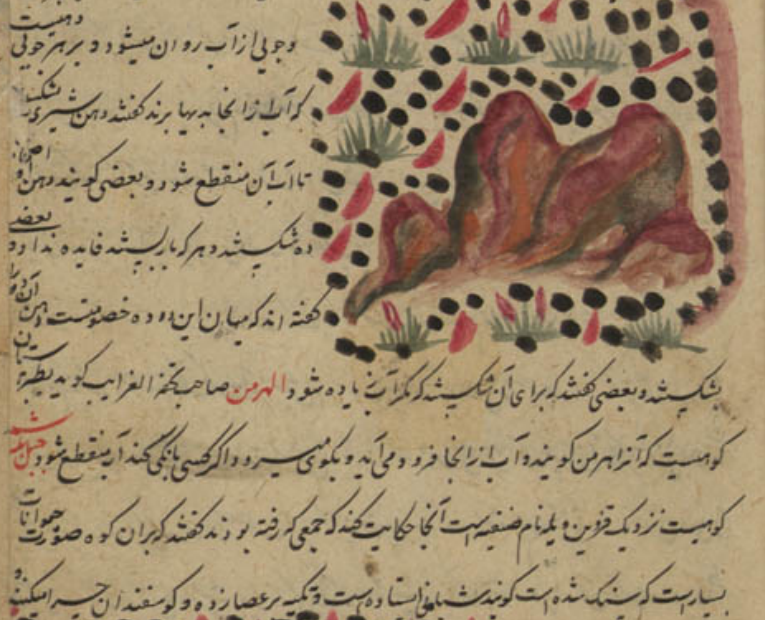 وجویی از آب روان میشود و بر هر جویی دهیست
که آب از آنجا به بها برند گفتند دهن شیری بشکنید
تا آب آن منقطع شود و بعضی گویند دهن او
ده شکستند و هر که باز بستند فایده نداد و بعضی
گفته اند که میان این دو ده خصومتست دهن آن را
بشکستند و بعضی گفتند که برای آن شکستند که مگر آب زیاده شود الهرمن صاحب تحفة الغرایب گوید بطبرستان
کوهیست که آنرا هرمن گویند و آب از آنجا فرود می آید و بکوی میرود و اگر کسی بانگی کند آب منقطع شود جبل یله بشم
کوهیست نزدیک قزوین و یله نام ضیعه است آنجا حکایت کند که جمعی که رفته بودند گفتند که بر آن کوه صورت حیوانات
بسیار است که سنگ شده است گویند شبانی ایستاده است و تکیه بر عصا زده و گوسفندان چرا میکنند و